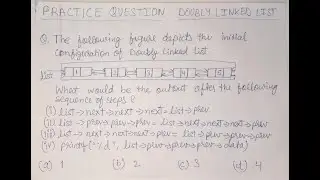 PRACTICE QUESTION DOUBLY LINKED LIST
Q. The following figure depicts the initial
configuration of Doubly Linked List
What would be the output after the following
sequence of steps ?
(i) list → next → next → next = list → prev
(ii) list → prev → prev → prev = list → next → next → prev
(iii) list → next → next → next → prev = list → prev → prev → prev
(iv) printf("%d", list → prev → prev → prev → data)
(a) 1 (b) 2 (c) 3 (d) 4